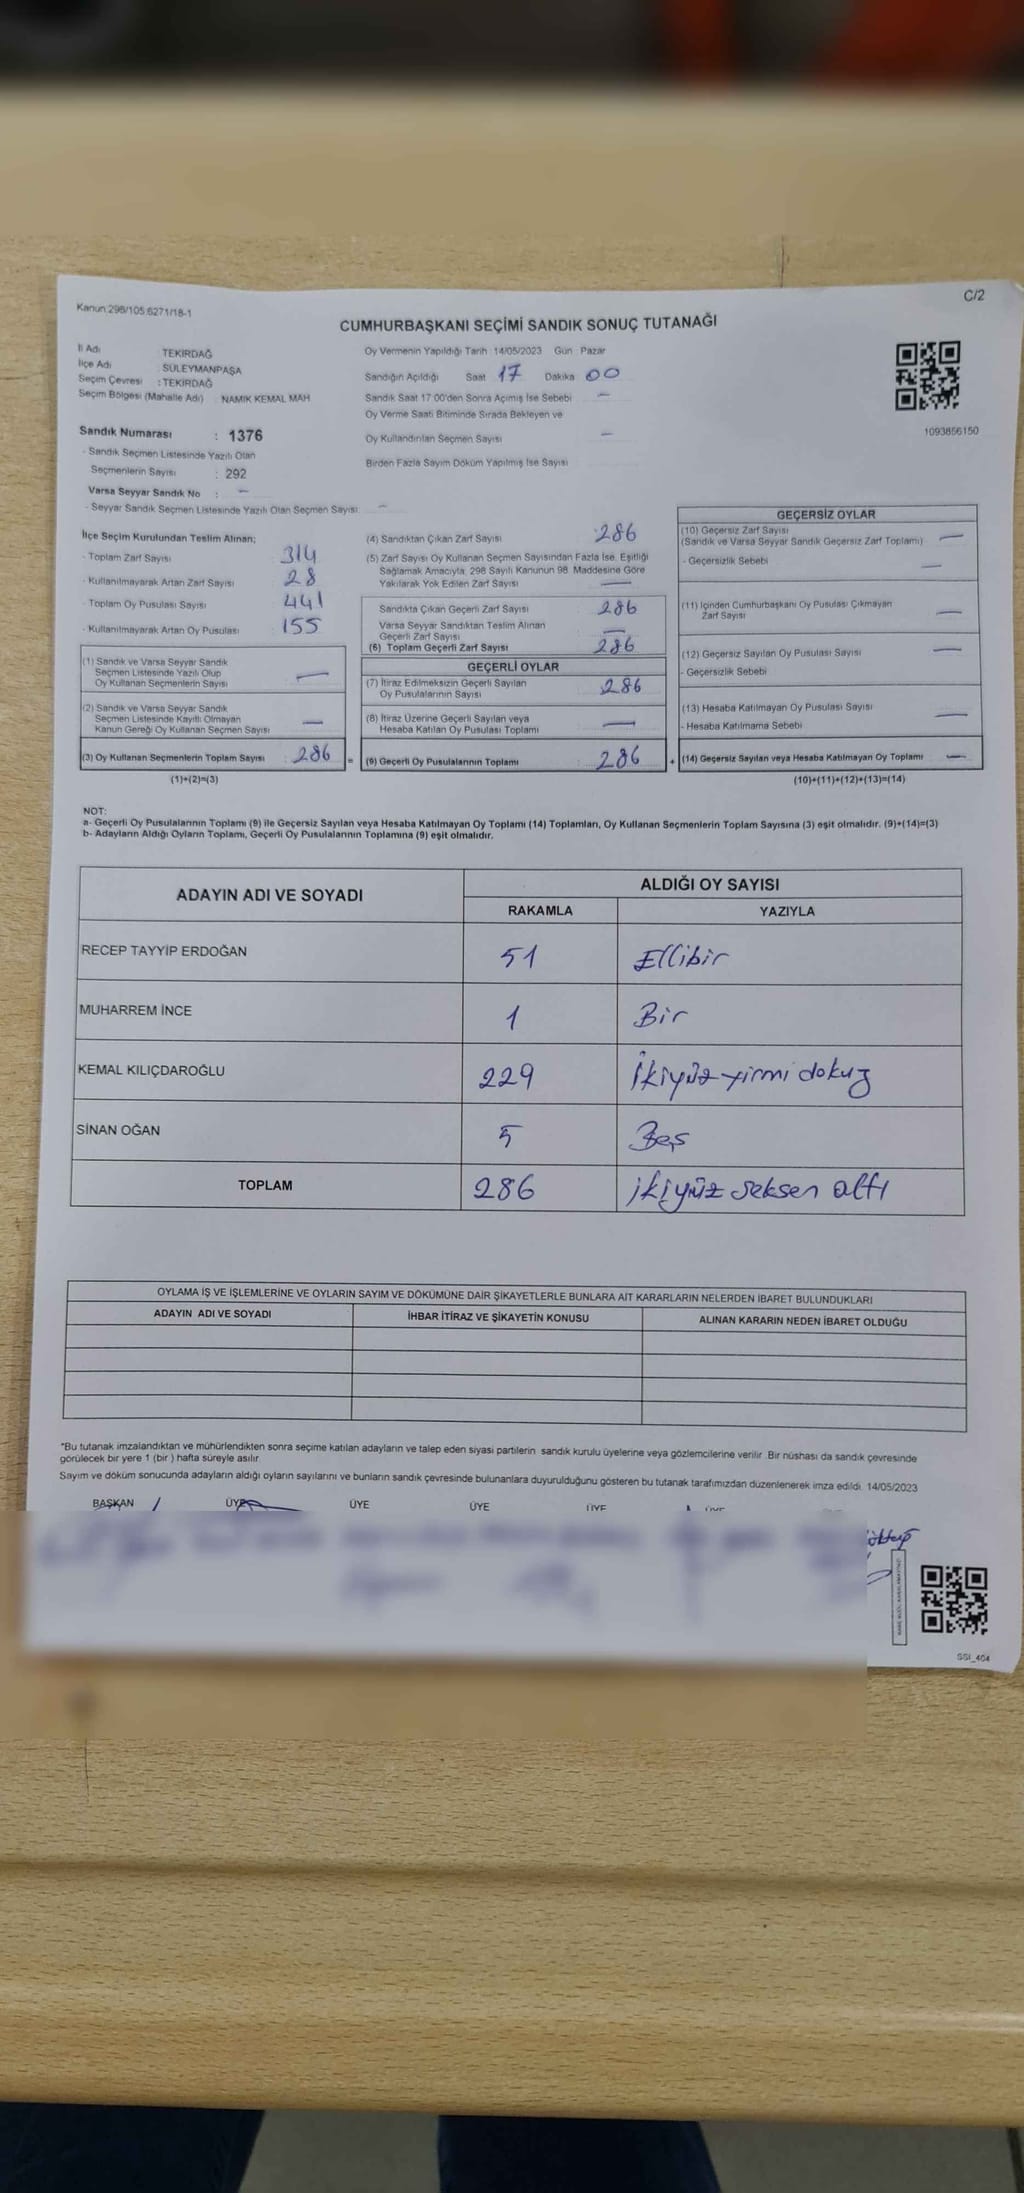 Kanun:298/105.6271/18-1
C/2
CUMHURBAŞKANI SEÇİMİ SANDIK SONUÇ TUTANAĞI
İl Adı TEKİRDAĞ
İlçe Adı : SÜLEYMANPAŞA
Seçim Çevresi : TEKİRDAĞ
Seçim Bölgesi (Mahalle Adı) : NAMIK KEMAL MAH
Sandık Numarası : 1376
- Sandık Seçmen Listesinde Yazılı Olan
Seçmenlerin Sayısı : 292
Varsa Seyyar Sandık No : -
- Seyyar Sandık Seçmen Listesinde Yazılı Olan Seçmen Sayısı: -
Oy Vermenin Yapıldığı Tarih 14/05/2023 Gün Pazar
Sandığın Açıldığı Saat 17 Dakika 00
Sandık Saat 17:00'den Sonra Açımış İse Sebebi -
Oy Verme Saati Bitiminde Sırada Bekleyen ve
Oy Kullandırılan Seçmen Sayısı -
Birden Fazla Sayım Döküm Yapılmış İse Sayısı
1093856150
İlçe Seçim Kurulundan Teslim Alınan;
- Toplam Zarf Sayısı 314
- Kullanılmayarak Artan Zarf Sayısı 28
- Toplam Oy Pusulası Sayısı 441
- Kullanılmayarak Artan Oy Pusulası 155
(1) Sandık ve Varsa Seyyar Sandık
Seçmen Listesinde Yazılı Olup
Oy Kullanan Seçmenlerin Sayısı -
(2) Sandık ve Varsa Seyyar Sandık
Seçmen Listesinde Kayıtlı Olmayan
Kanun Gereği Oy Kullanan Seçmen Sayısı -
(3) Oy Kullanan Seçmenlerin Toplam Sayısı : 286
(1)+(2)=(3)
(4) Sandıktan Çıkan Zarf Sayısı :286
(5) Zarf Sayısı Oy Kullanan Seçmen Sayısından Fazla İse, Eşitliği
Sağlamak Amacıyla, 298 Sayılı Kanunun 98. Maddesine Göre
Yakılarak Yok Edilen Zarf Sayısı -
Sandıkta Çıkan Geçerli Zarf Sayısı 286
Varsa Seyyar Sandıktan Teslim Alınan
Geçerli Zarf Sayısı -
(6) Toplam Geçerli Zarf Sayısı 286
GEÇERLİ OYLAR
(7) İtiraz Edilmeksizin Geçerli Sayılan
Oy Pusulalarının Sayısı 286
(8) İtiraz Üzerine Geçerli Sayılan veya
Hesaba Katılan Oy Pusulası Toplamı -
= (9) Geçerli Oy Pusulalarının Toplamı 286
GEÇERSİZ OYLAR
(10) Geçersiz Zarf Sayısı
(Sandık ve Varsa Seyyar Sandık Geçersiz Zarf Toplamı) -
- Geçersizlik Sebebi -
(11) İçinden Cumhurbaşkanı Oy Pusulası Çıkmayan
Zarf Sayısı -
(12) Geçersiz Sayılan Oy Pusulası Sayısı -
- Geçersizlik Sebebi
(13) Hesaba Katılmayan Oy Pusulası Sayısı -
- Hesaba Katılmama Sebebi
+ (14) Geçersiz Sayılan veya Hesaba Katılmayan Oy Toplamı -
(10)+(11)+(12)+(13)=(14)
NOT:
a- Geçerli Oy Pusulalarının Toplamı (9) ile Geçersiz Sayılan veya Hesaba Katılmayan Oy Toplamı (14) Toplamları, Oy Kullanan Seçmenlerin Toplam Sayısına (3) eşit olmalıdır. (9)+(14)=(3)
b- Adayların Aldığı Oyların Toplamı, Geçerli Oy Pusulalarının Toplamına (9) eşit olmalıdır.
ADAYIN ADI VE SOYADI ALDIĞI OY SAYISI
RAKAMLA YAZIYLA
RECEP TAYYİP ERDOĞAN 51 Ellibir
MUHARREM İNCE 1 Bir
KEMAL KILIÇDAROĞLU 229 İkiyüz yirmi dokuz
SİNAN OĞAN 5 Beş
TOPLAM 286 ikiyüz seksen altı
OYLAMA İŞ VE İŞLEMLERİNE VE OYLARIN SAYIM VE DÖKÜMÜNE DAİR ŞİKAYETLERLE BUNLARA AİT KARARLARIN NELERDEN İBARET BULUNDUKLARI
ADAYIN ADI VE SOYADI İHBAR İTİRAZ VE ŞİKAYETİN KONUSU ALINAN KARARIN NEDEN İBARET OLDUĞU
*Bu tutanak imzalandıktan ve mühürlendikten sonra seçime katılan adayların ve talep eden siyasi partilerin sandık kurulu üyelerine veya gözlemcilerine verilir. Bir nüshası da sandık çevresinde
görülecek bir yere 1 (bir ) hafta süreyle asılır.
Sayım ve döküm sonucunda adayların aldığı oyların sayılarını ve bunların sandık çevresinde bulunanlara duyurulduğunu gösteren bu tutanak tarafımızdan düzenlenerek imza edildi. 14/05/2023
BAŞKAN ÜYE ÜYE ÜYE ÜYE ÜYE
SSI_404